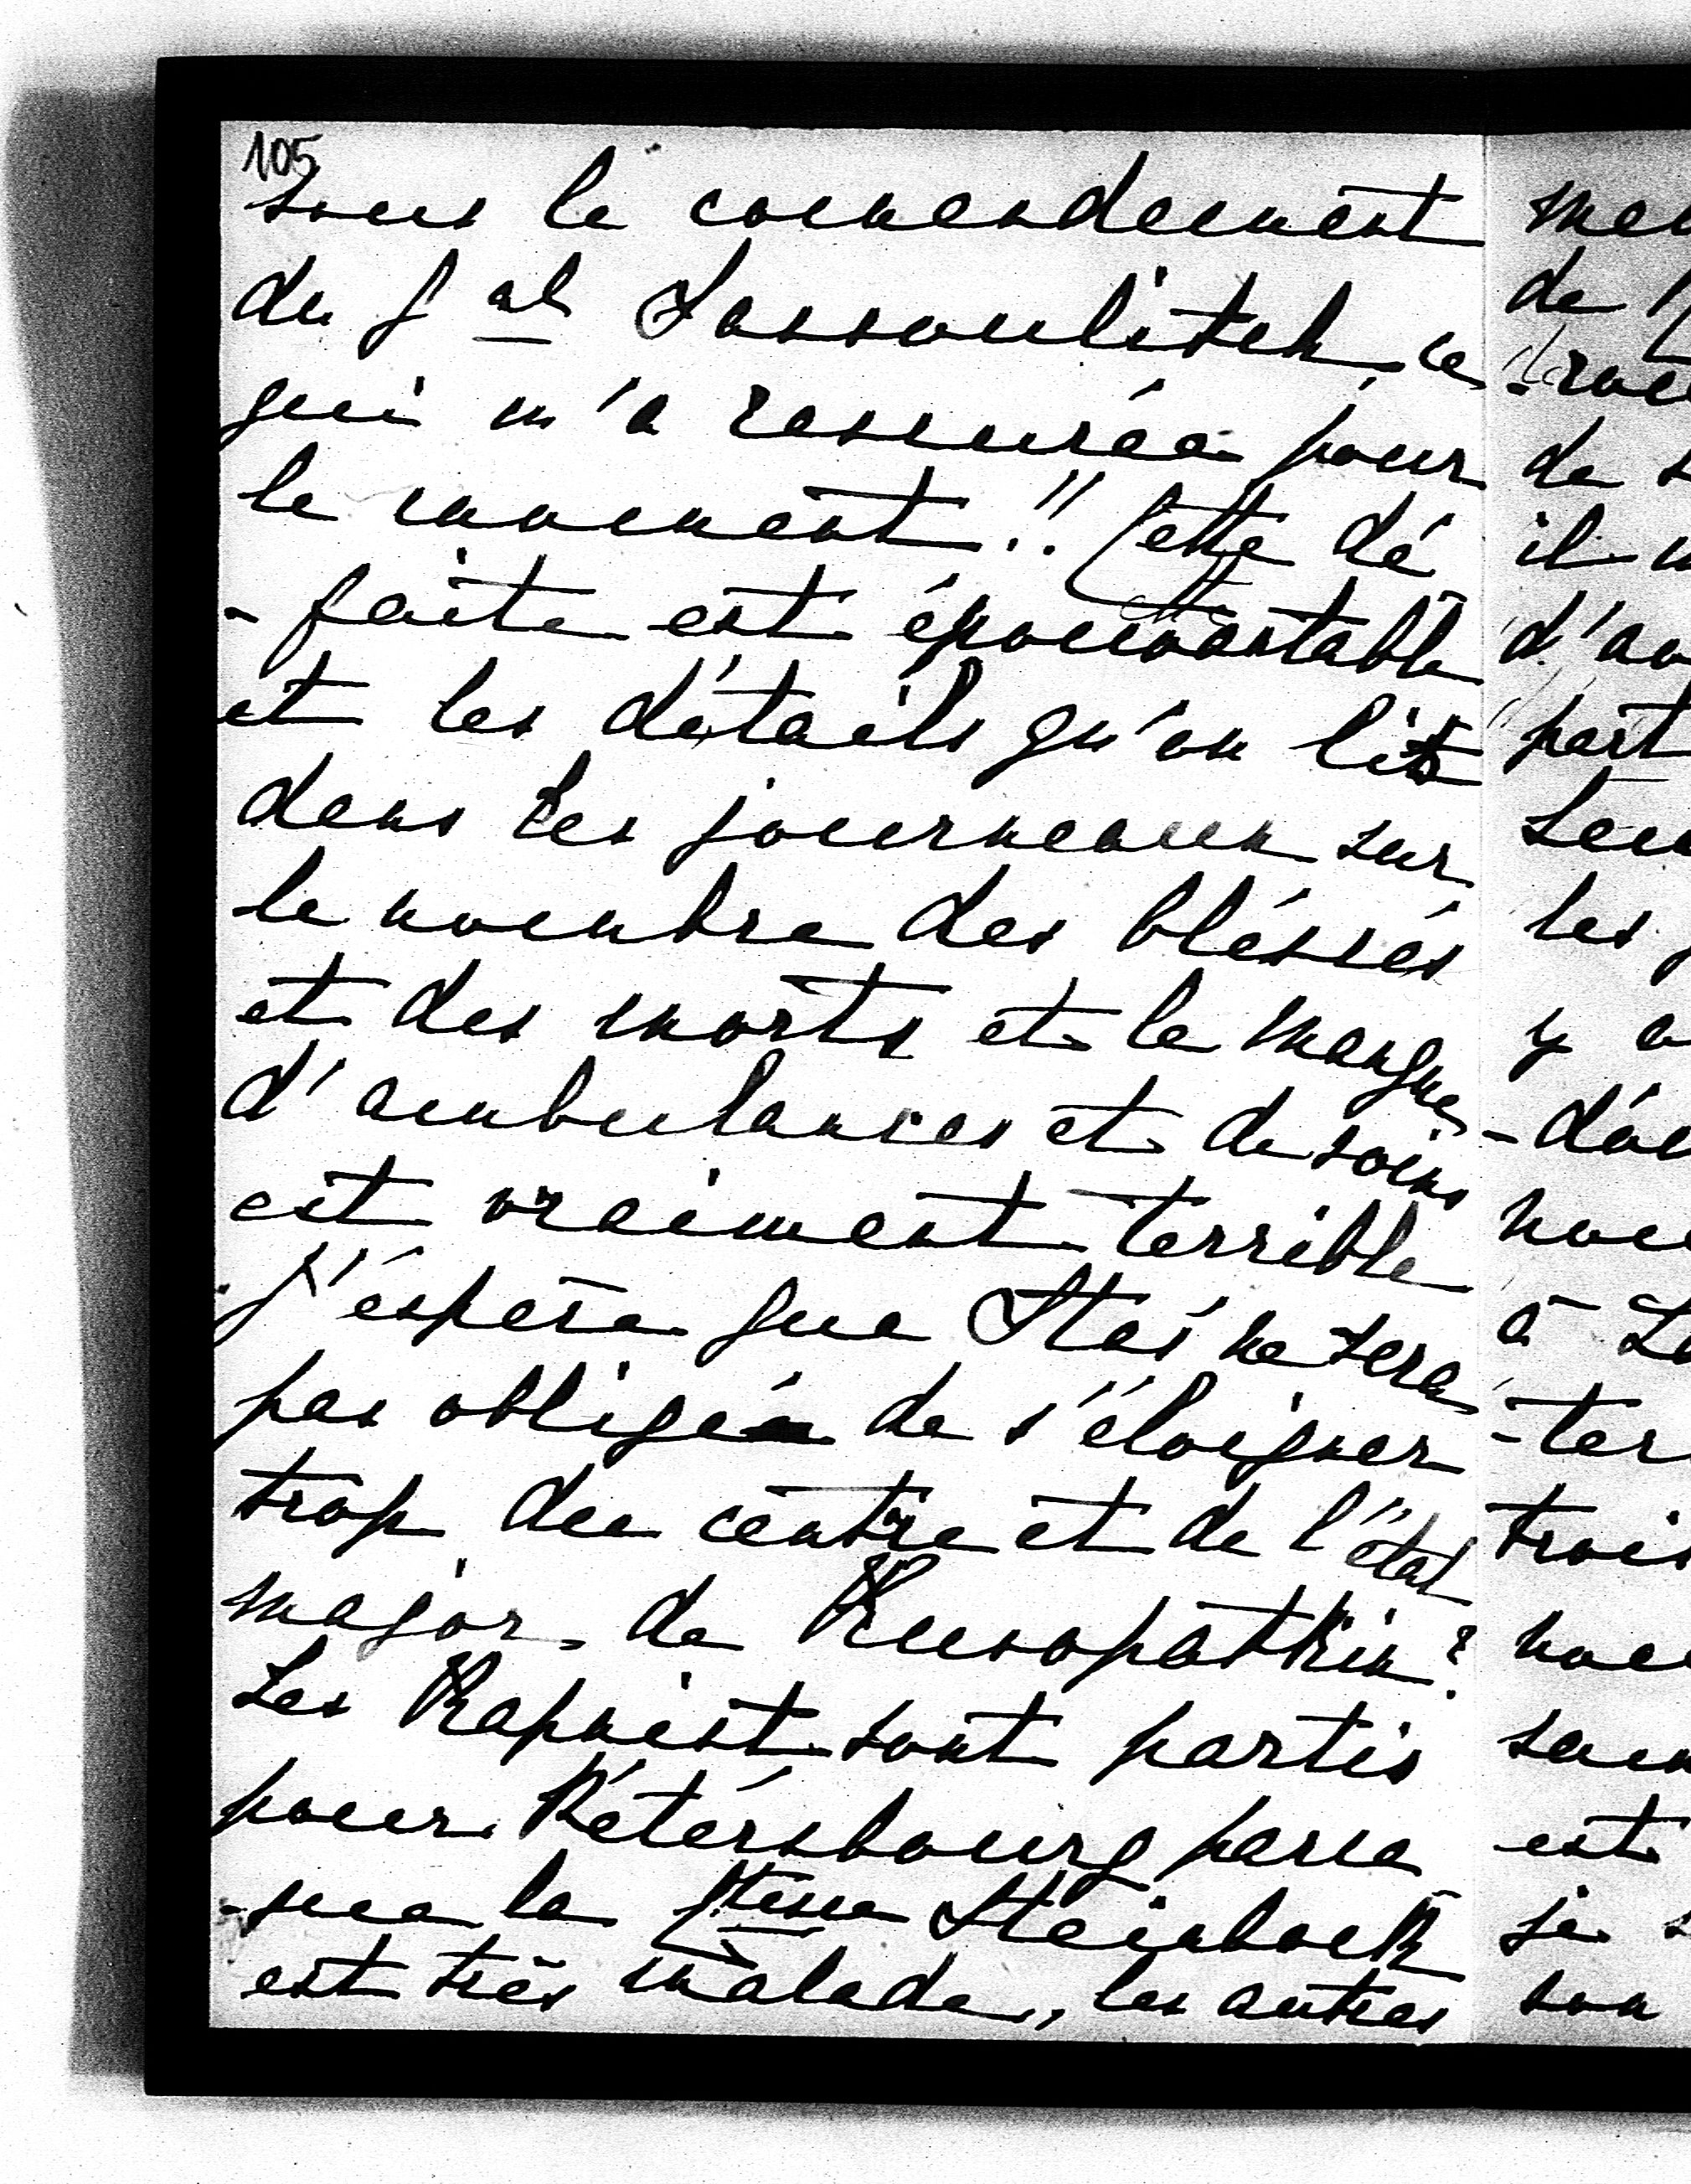 105
sous le commendement
du Gal Sassoulitch ce
qui m'a rassurée pour
le moment!! Cette dé
-faite est épouvantable
et les détails qu'on lit
dans les journeaux sur
le nombre des bléssés
et des morts et le manque
d'ambulances et de soins
est vraiment terrible
J'éspère que Stas ne sera
pas obligé de s'éloigner
trop du centre et de l'état
major de Kuropatkin?
Les Kapnist sont partis
pour Pétérsbourg parce
-que la Ctesse Steinbock
est très malade, les autres
de
de
il
les
trois
est
je
son